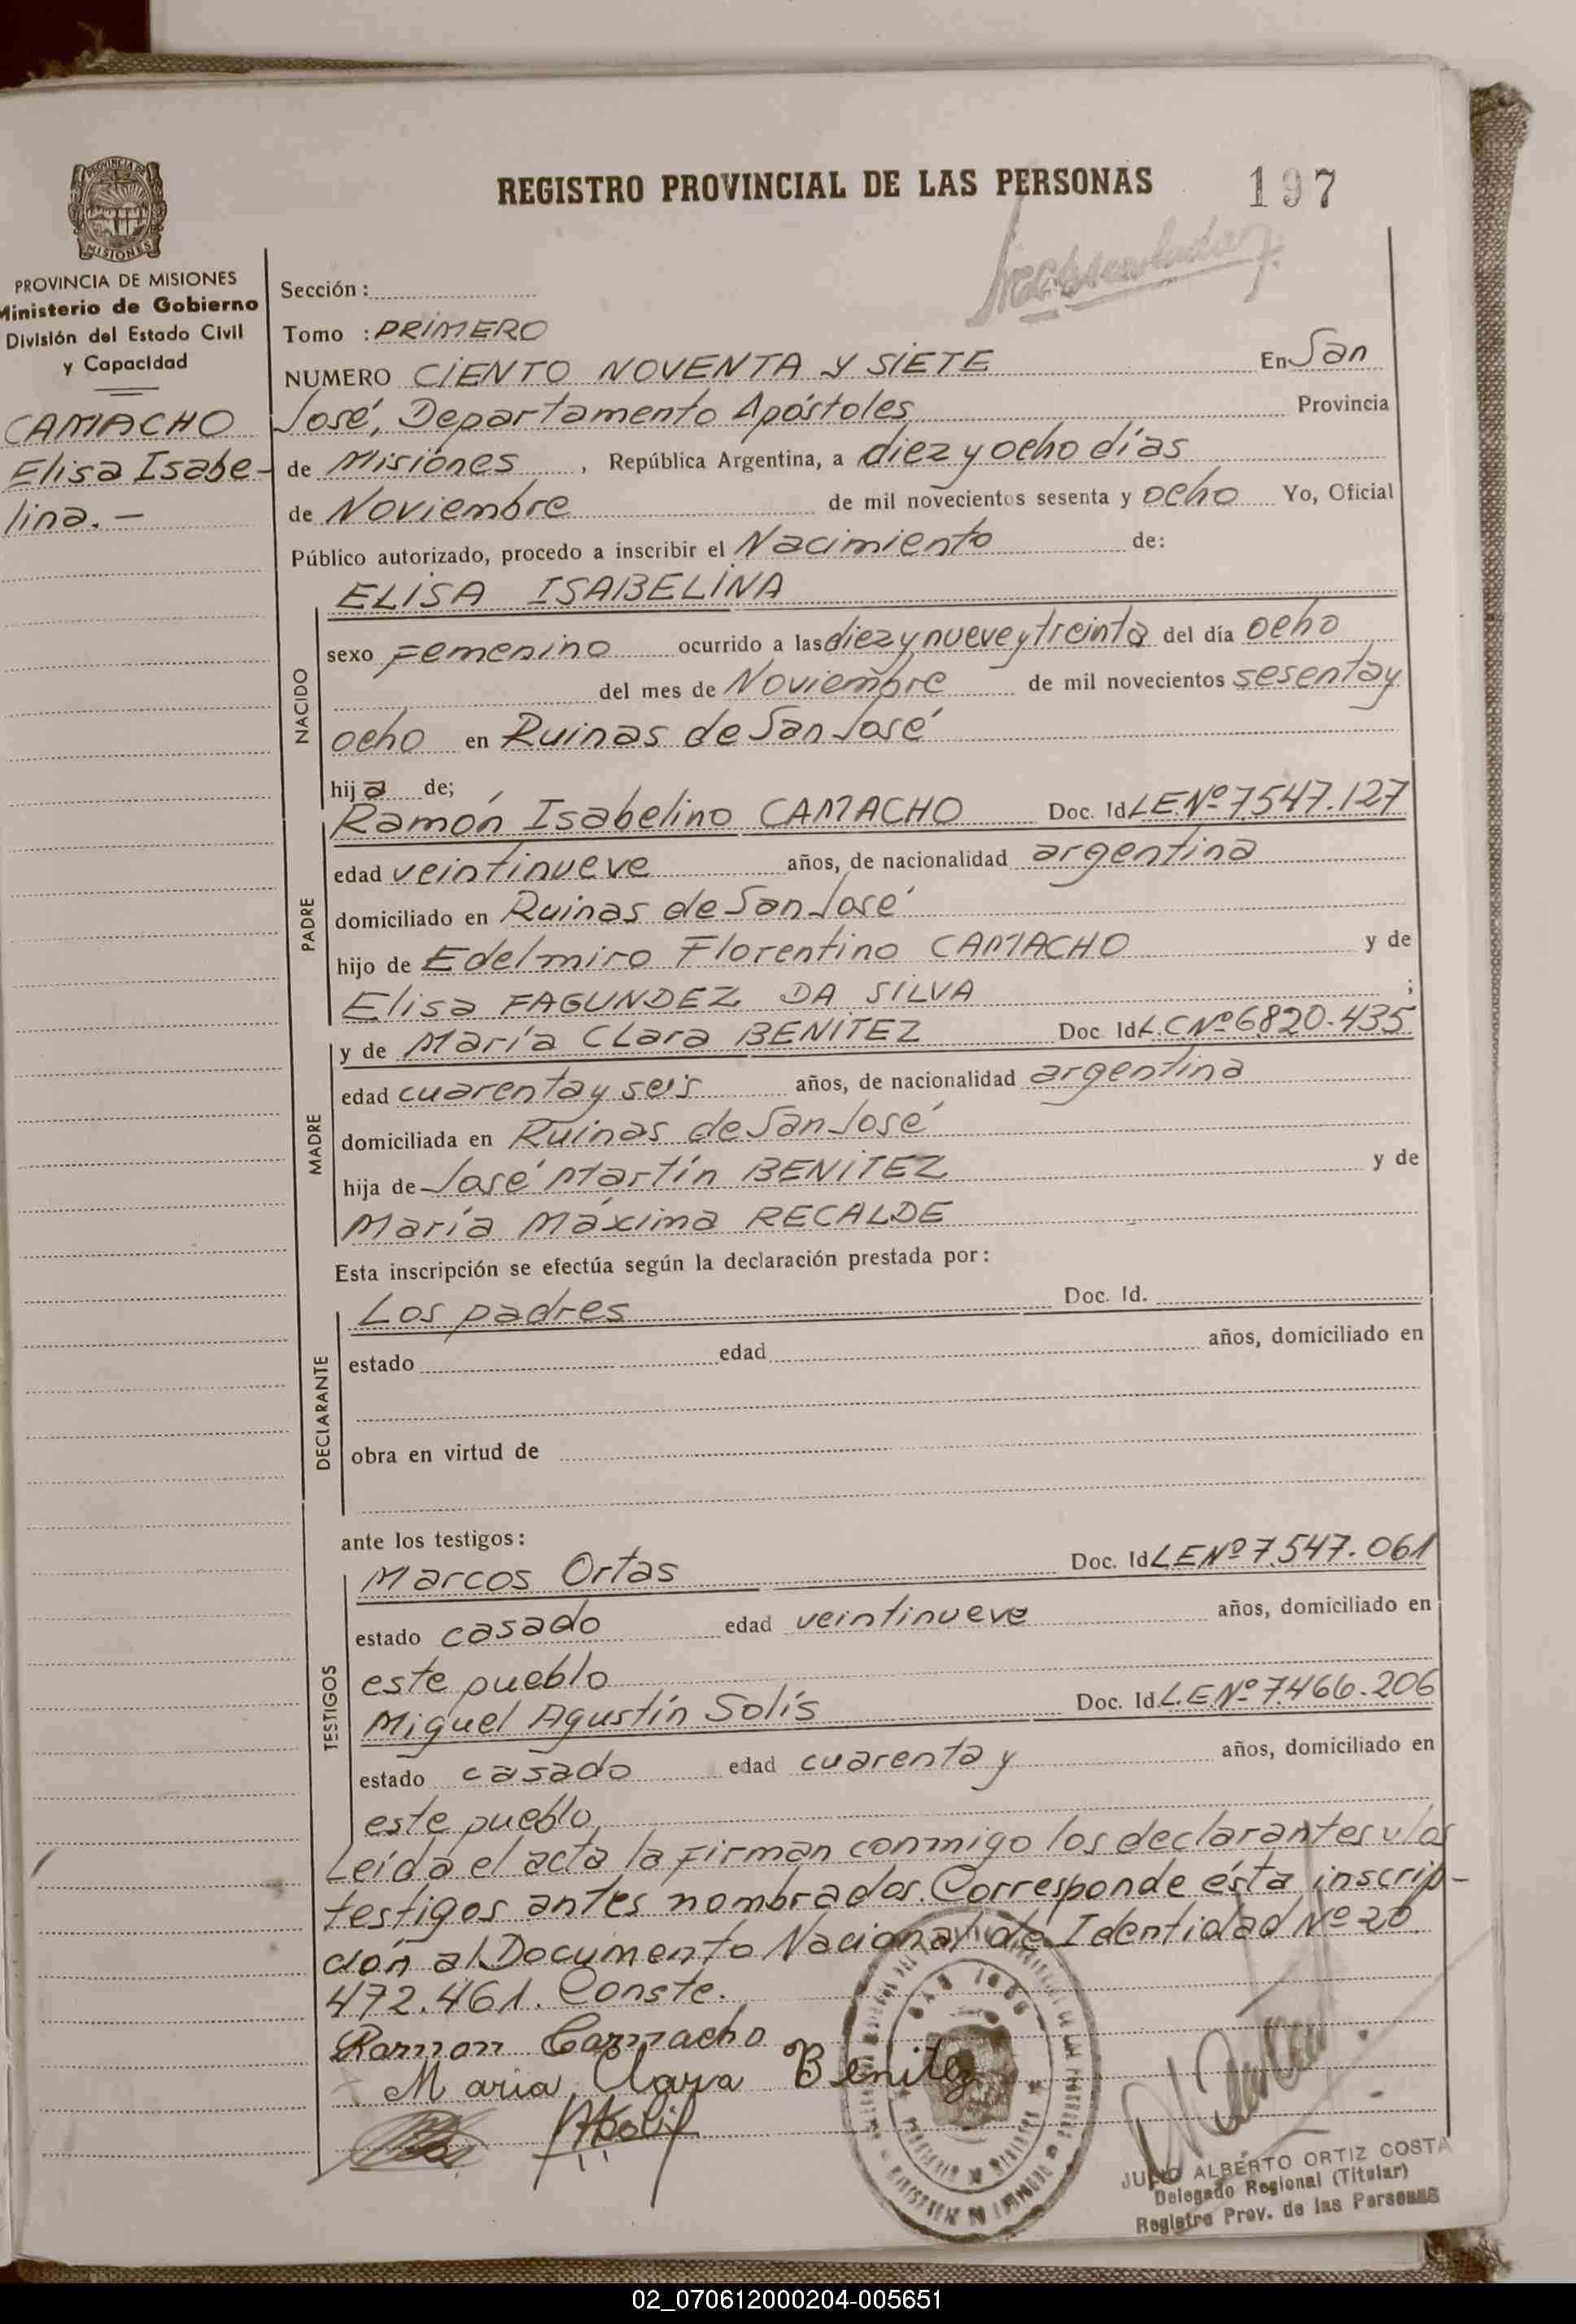 REGISTRO PROVINCIAL DE LAS PERSONAS 197
PROVINCIA DE MISIONES
MISIONES
PROVINCIA DE MISIONES
Ministerio de Gobierno
División del Estado Civil
y Capacidad
CAMACHO
Elisa Isabe-
lina.-
Sección:
Tomo : PRIMERO
NUMERO CIENTO NOVENTA Y SIETE En San
José, Departamento Apóstoles Provincia
de Misiones, República Argentina, a diez y ocho días
de Noviembre de mil novecientos sesenta y ocho Yo, Oficial
Público autorizado, procedo a inscribir el Nacimiento de:
NACIDO
ELISA ISABELINA
sexo Femenino ocurrido a las diez y nueve y treinta del día ocho
del mes de Noviembre de mil novecientos sesenta y
ocho en Ruinas de San José
hija de;
PADRE
Ramón Isabelino CAMACHO Doc. Id L.E.Nº 7.547.127
edad veintinueve años, de nacionalidad argentina
domiciliado en Ruinas de San José
hijo de Edelmiro Florentino CAMACHO y de
Elisa FAGUNDEZ DA SILVA ;
MADRE
y de María Clara BENITEZ Doc. Id L.C Nº 6.820.435
edad cuarenta y seis años, de nacionalidad argentina
domiciliada en Ruinas de San José
hija de José Martín BENITEZ y de
María Máxima RECALDE
Esta inscripción se efectúa según la declaración prestada por:
DECLARANTE
Los padres Doc. Id.
estado edad años, domiciliado en
obra en virtud de
ante los testigos:
TESTIGOS
Marcos Ortas Doc. Id L.E Nº 7.547.061
estado casado edad veintinueve años, domiciliado en
este pueblo
Miguel Agustín Solís Doc. Id L.E Nº 7.466.206
estado casado edad cuarenta y años, domiciliado en
este pueblo
Leída el acta la firman conmigo los declarantes y los
testigos antes nombrados. Corresponde ésta inscrip-
ción al Documento Nacional de Identidad Nº 20.
472.461. Conste.
Ramon Camacho
Maria Clara Benitez
JULIO ALBERTO ORTIZ COSTA
Delegado Regional (Titular)
Registro Prov. de las Personas
02_070612000204-005651